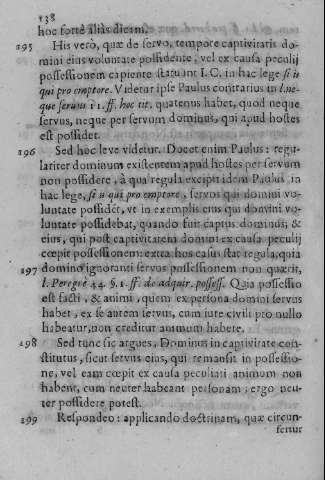 138
hoc fortè aliàs dicam.
295 His verò, quæ de servo, tempore captivitatis do-
mini eius voluntate possidente, vel ex causa peculij
possessionem capiente statuunt I.C. in hac lege si is
qui pro emptore. Videtur ipse Paulus contrarius in l. ne-
que servus 11. ff. hoc tit. quatenus habet, quod neque
servus, neque per servum dominus, qui apud hostes
est possidet.
296 Sed hoc leve videtur. Docet enim Paulus: regu-
lariter dominum existentem apud hostes per servum
non possidere, à qua regula excipit idem Paulus in
hac lege, si is qui pro emptore, servos qui domini vo-
luntate possidēt, vt in exemplis eius qui domini vo-
luntate possidebat, quando fuit captus dominus; &
eius, qui post captivitatem domini ex causa peculij
cœpit possessionem: extra hos casus stat regula, quia
297 domino ignoranti servus possessionem non quærit,
l. Peregrè 44. §. 1. ff. de adquir. possess. Quia possessio
est facti, & animi, quem ex persona domini servus
habet, ex se autem servus, cum iure civili pro nullo
habeatur, non creditur animum habere.
298 Sed tunc sic argues, Dominus in captivitate con-
stitutus, sicut servus eius, qui remansit in possessio-
ne, vel eam cœpit ex causa peculiari animum non
habent, cum neuter habeant personam: ergo neu-
ter possidere potest.
299 Respondeo: applicando doctrinam, quæ circun-
fertur